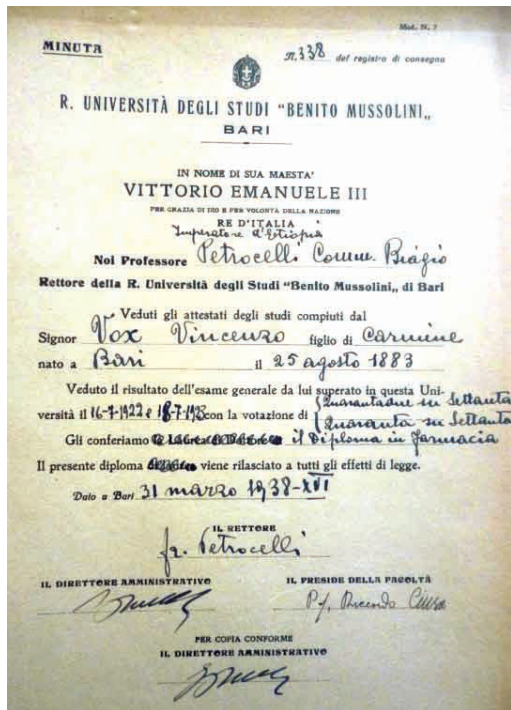 Mod. N. 7
MINUTA
N. 338 del registro di consegna
R. UNIVERSITÀ DEGLI STUDI "BENITO MUSSOLINI„
BARI
IN NOME DI SUA MAESTA'
VITTORIO EMANUELE III
PER GRAZIA DI DIO E PER VOLONTÀ DELLA NAZIONE
RE D'ITALIA
Imperatore d'Etiopia
Noi Professore Petrocelli Comm. Biagio
Rettore della R. Università degli Studi "Benito Mussolini„ di Bari
Veduti gli attestati degli studi compiuti dal
Signor Vox Vincenzo figlio di Carmine
nato a Bari il 25 agosto 1883
Veduto il risultato dell'esame generale da lui superato in questa Uni-
versità il 16-7-1922 e 18-7-1923 con la votazione di Quarantadue su Settanta
Quaranta su Settanta
Gli conferiamo il Diploma in Farmacia
Il presente diploma viene rilasciato a tutti gli effetti di legge.
Dato a Bari 31 marzo 1938-XVI
IL RETTORE
fr. Petrocelli
IL DIRETTORE AMMINISTRATIVO IL PRESIDE DELLA FACOLTÀ
Pf. Riccardo
PER COPIA CONFORME
IL DIRETTORE AMMINISTRATIVO